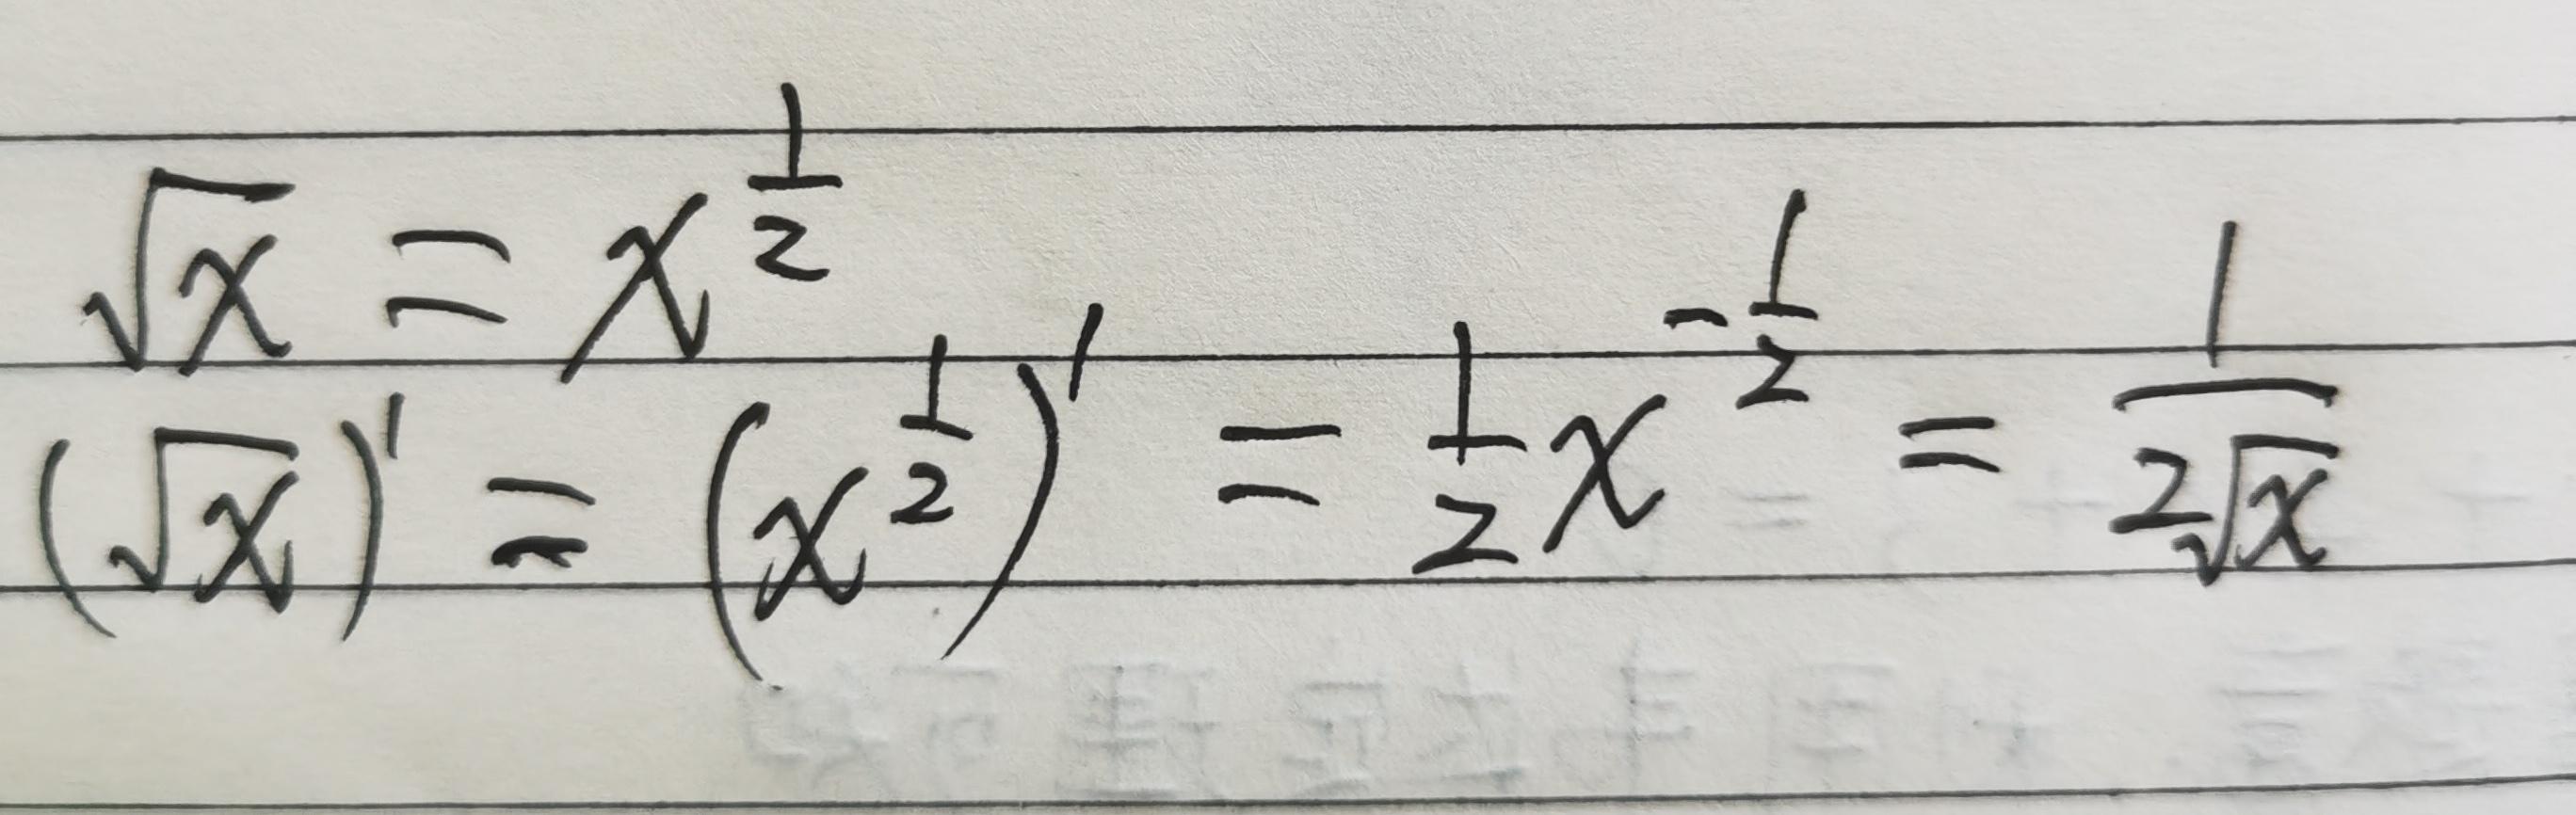 √x = x^{1/2}
(√x)' = (x^{1/2})' = 1/2 x^{-1/2} = 1/(2√x)